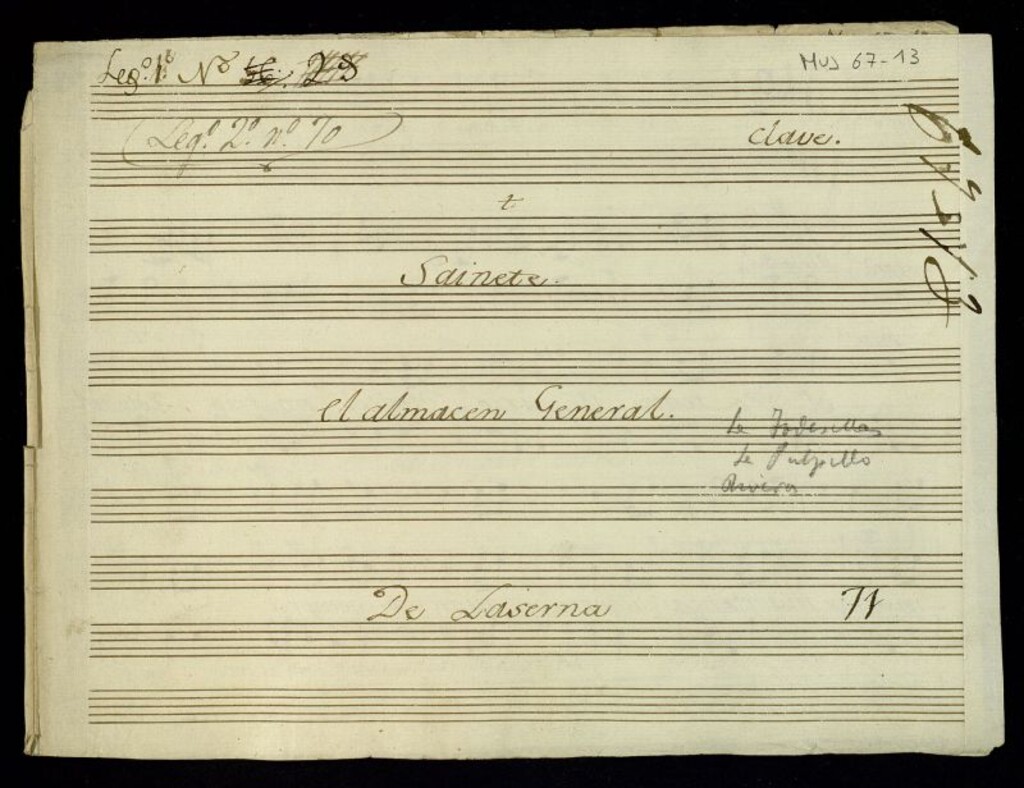 Leg.º 1.º Nº 28
MUS 67-13
Leg.º 2.º n.º 70
Clave.
t
Sainete.
el almacen General.
La
La Pulpillo
Rivera
De Laserna
71